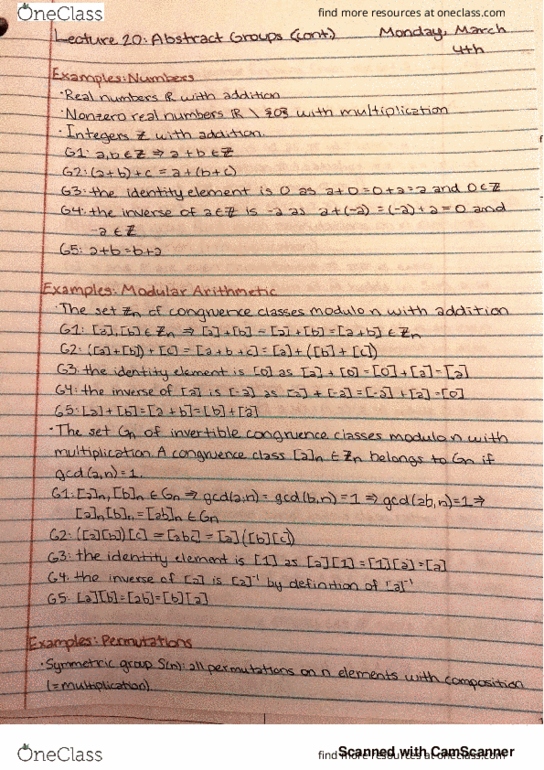 OneClass
find more resources at oneclass.com
Lecture 20: Abstract Groups (cont.) Monday, March
4th
Examples: Numbers
· Real numbers ℝ with addition
· Nonzero real numbers ℝ \ {0} with multiplication
· Integers ℤ with addition.
G1: a,b∈ℤ ⇒ a+b∈ℤ
G2: (a+b)+c = a+(b+c)
G3: the identity element is 0 as a+0=0+a=a and 0∈ℤ
G4: the inverse of a∈ℤ is -a as a+(-a)=(-a)+a=0 and
-a∈ℤ
G5: a+b=b+a
Examples: Modular Arithmetic
· The set ℤn of congruence classes modulo n with addition
G1: [a],[b]∈ℤn ⇒ [a]+[b]=[a]+[b]=[a+b]∈ℤn
G2: ([a]+[b])+[c]=[a+b+c]=[a]+([b]+[c])
G3: the identity element is [0] as [a]+[0]=[0]+[a]=[a]
G4: the inverse of [a] is [-a] as [a]+[-a]=[-a]+[a]=[0]
G5: [a]+[b]=[a+b]=[b]+[a]
· The set Gn of invertible congruence classes modulo n with
multiplication. A congruence class [a]n∈ℤn belongs to Gn if
gcd(a,n)=1.
G1: [a]n,[b]n∈Gn ⇒ gcd(a,n)=gcd(b,n)=1 ⇒ gcd(ab,n)=1 ⇒
[a]n[b]n=[ab]n∈Gn
G2: ([a][b])[c]=[abc]=[a]([b][c])
G3: the identity element is [1] as [a][1]=[1][a]=[a]
G4: the inverse of [a] is [a]⁻¹ by definition of [a]⁻¹
G5: [a][b]=[ab]=[b][a]
Examples: Permutations
· Symmetric group S(n): all permutations on n elements with composition
(=multiplication)
OneClass
find more resources at oneclass.com
Scanned with CamScanner